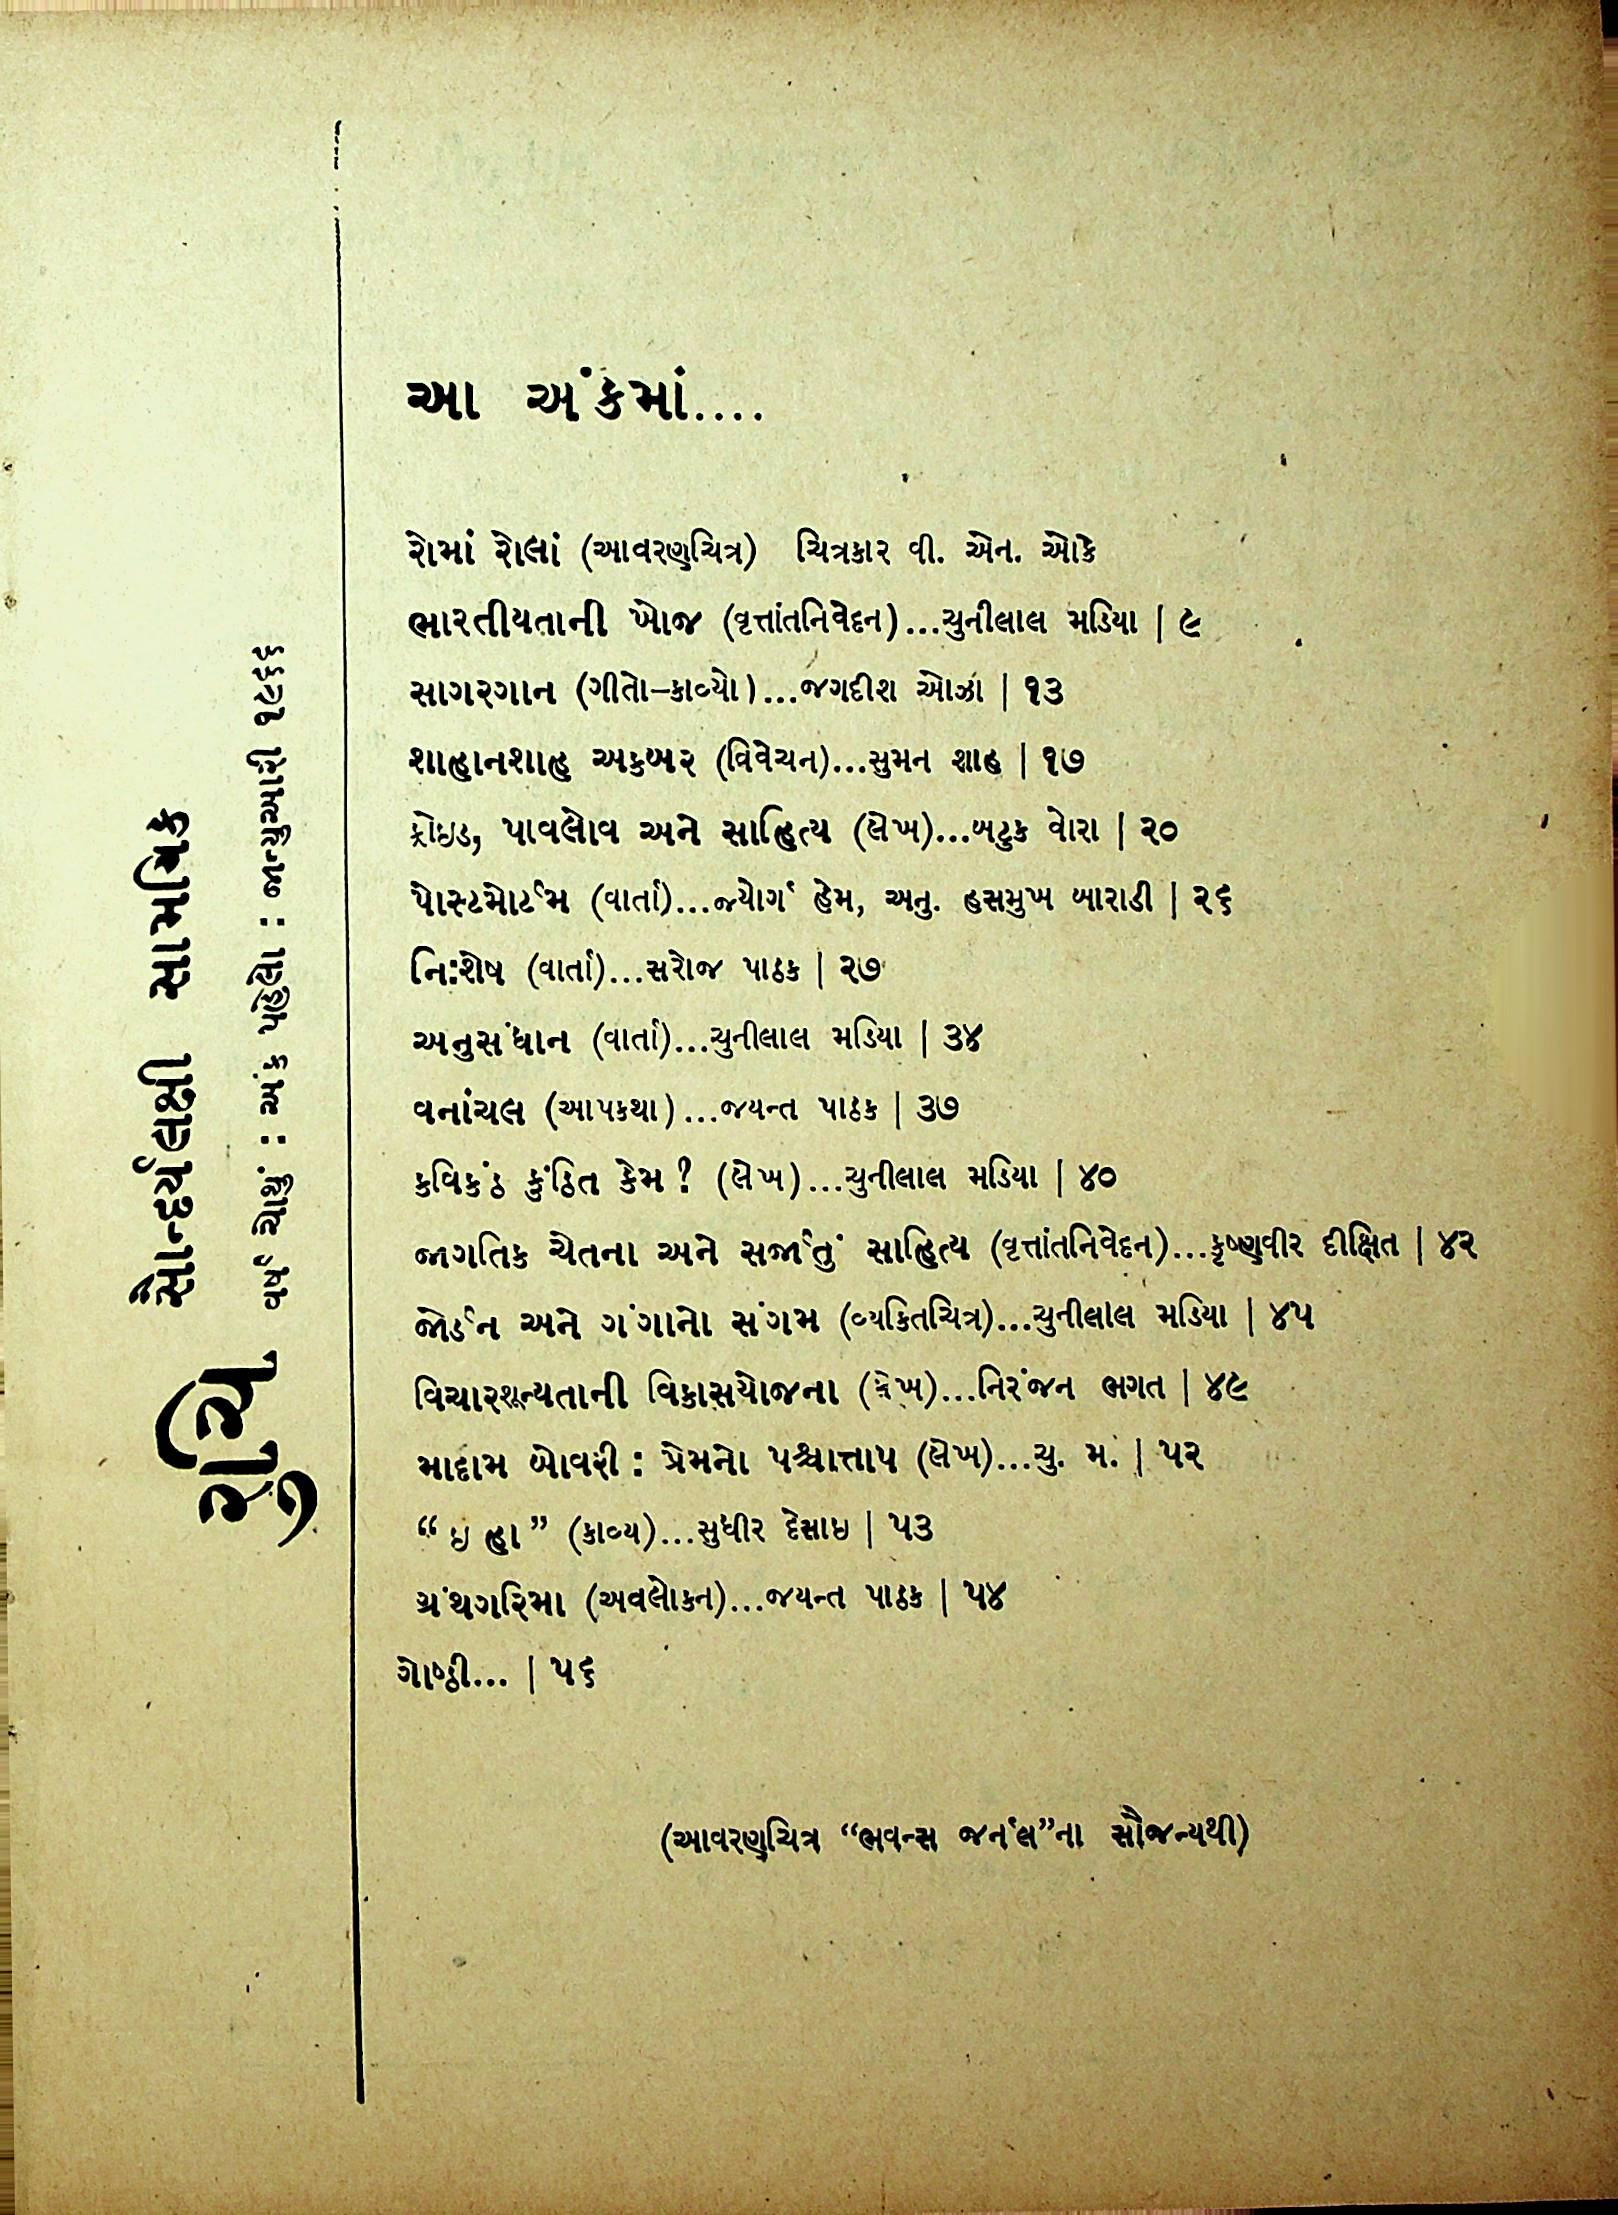 રુચિ
સૌન્દર્યલક્ષી સામયિક
વર્ષ ચોથું : અંક પહેલો : જાન્યુઆરી ૧૯૬૬
આ અંકમાં....
રોમાં રોલાં (આવરણચિત્ર) ચિત્રકાર વી. એન. ઓકે
ભારતીયતાની ખોજ (વૃત્તાંતનિવેદન)...ચુનીલાલ મડિયા | ૯
સાગરગાન (ગીતો–કાવ્યો)...જગદીશ ઓઝા | ૧૩
શાહાનશાહ અકબર (વિવેચન)...સુમન શાહ | ૧૭
ફ્રોઇડ, પાવલોવ અને સાહિત્ય (લેખ)...બટુક વોરા | ૨૦
પોસ્ટમોર્ટમ (વાર્તા)...જ્યોર્ગ હેમ, અનુ. હસમુખ બારાડી | ૨૬
નિઃશેષ (વાર્તા)...સરોજ પાઠક | ૨૭
અનુસંધાન (વાર્તા)...ચુનીલાલ મડિયા | ૩૪
વનાંચલ (આપકથા)...જયન્ત પાઠક | ૩૭
કવિકંઠ કુંઠિત કેમ? (લેખ)...ચુનીલાલ મડિયા | ૪૦
જાગતિક ચેતના અને સર્જાતું સાહિત્ય (વૃત્તાંતનિવેદન)...કૃષ્ણવીર દીક્ષિત | ૪૨
જોર્ડન અને ગંગાનો સંગમ (વ્યકિતચિત્ર)...ચુનીલાલ મડિયા | ૪૫
વિચારશૂન્યતાની વિકાસયોજના (લેખ)...નિરંજન ભગત | ૪૯
માદામ બોવરી : પ્રેમનો પશ્ચાત્તાપ (લેખ)...ચુ. મ. | ૫૨
“ ઇ હા ” (કાવ્ય)...સુધીર દેસાઇ | ૫૩
ગ્રંથગરિમા (અવલોકન)...જયન્ત પાઠક | ૫૪
ગોષ્ઠી... | ૫૬
(આવરણચિત્ર “ભવન્સ જર્નલ”ના સૌજન્યથી)